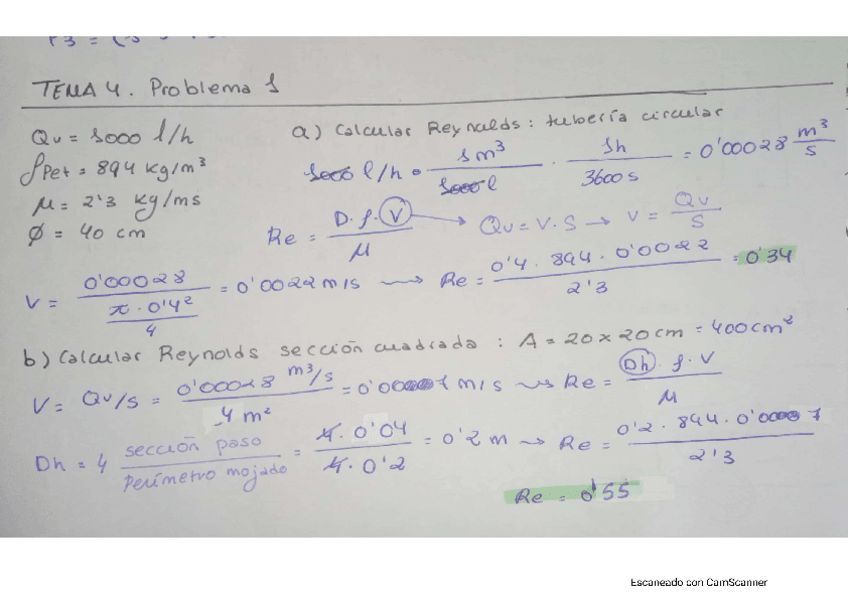 TEMA 4. Problema 1
Qv = 1000 l/h
ρPet = 894 kg/m³
μ = 2'3 kg/ms
Ø = 40 cm
a) Calcular Reynolds: tubería circular
1000 l/h · 1m³/1000l · 1h/3600s = 0'00028 m³/s
Re = D·ρ·V/μ → Qv = V·S → V = Qv/S
V = 0'00028/(π·0'4²/4) = 0'0022 m/s → Re = 0'4·894·0'0022/2'3 = 0'34
b) Calcular Reynolds sección cuadrada: A = 20x20cm = 400cm²
V = Qv/s = 0'00028 m³/s / 4 m² = m/s → Re = Dh·ρ·V/μ
Dh = 4 sección paso/Perímetro mojado = 4·0'04/4·0'2 = 0'2 m → Re = 0'2·894·/2'3
Re = 0'55
Escaneado con CamScanner